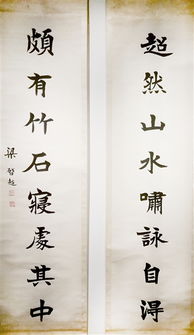 超然山水嘯詠自得
頗有竹石寢處其中
梁啓超